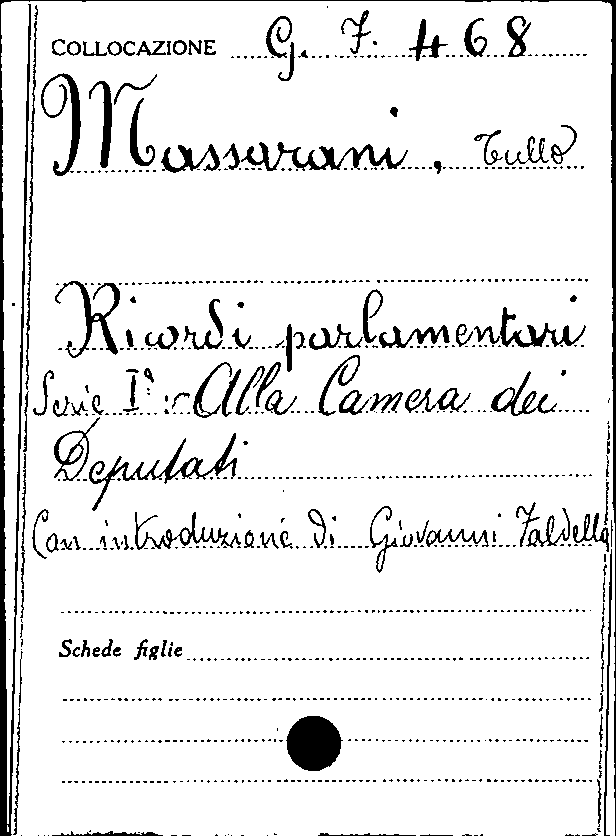 COLLOCAZIONE G. F. 468
Massarani, Tullo
Ricordi parlamentari
Serie Iª:- Alla Camera dei
Deputati
Con introduzione di Giovanni Faldella
Schede figlie